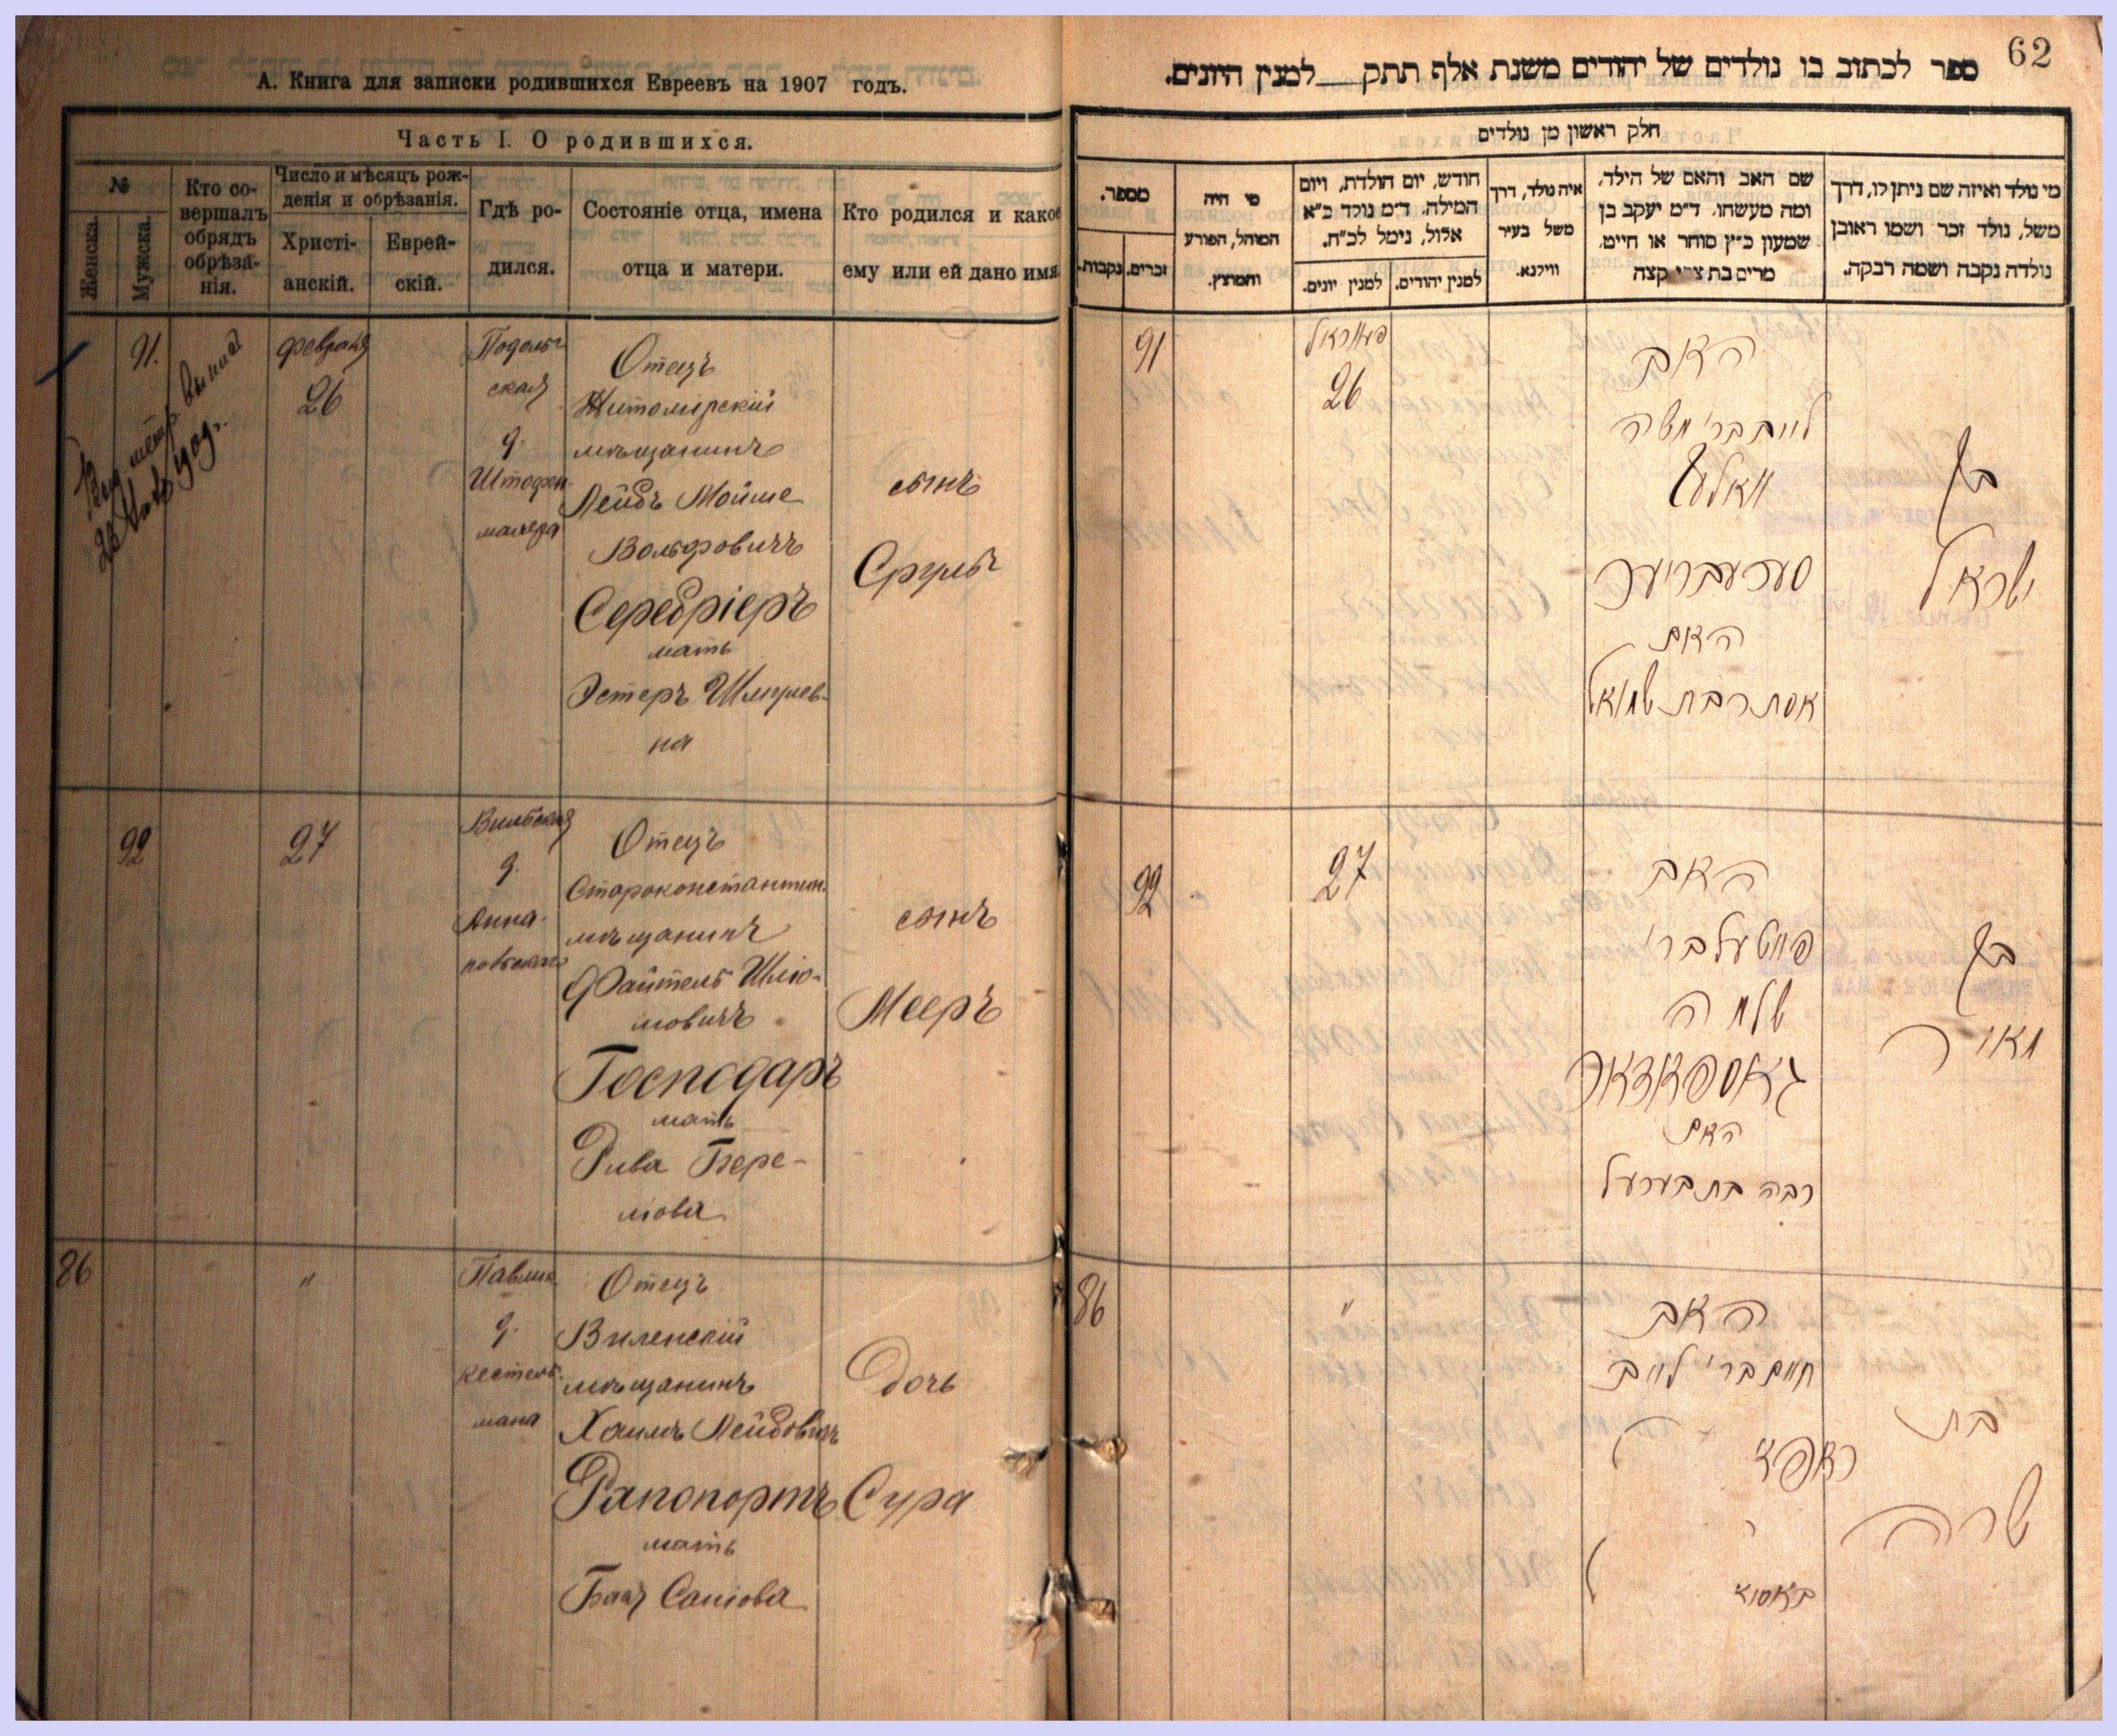 А. Книга для записки родившихся Евреевъ на 1907 годъ.
Часть I. О родившихся.
№
Женска.
Мужска.
Кто со-
вершалъ
обрядъ
обрѣза-
нія.
Число и мѣсяцъ рож-
денія и обрѣзанія.
Христі-
анскій.
Еврей-
скій.
Гдѣ ро-
дился.
Состояніе отца, имена
отца и матери.
Кто родился и какое
ему или ей дано имя
91.
февраля
26
Подоль
ская
д.
Отецъ
Житомірскій
мѣщанинъ
Лейбъ Мойше
Вольфовичъ
Серебріеръ
мать
Эстеръ Шмулев-
на
сынъ
Сруль
92
27
д.
Отецъ
Староконстантин.
мѣщанинъ
Файтель Шлio-
мовичъ
Господаръ
мать
Рива Бере-
лова
сынъ
Мееръ
86
"
д.
Отецъ
Виленскій
мѣщанинъ
Хаимъ Лейбовичъ
Рапопортъ
мать
Дочь
Сура
62
ספר לכתוב בו נולדים של יהודים משנת אלף תתק__למנין היונים.
חלק ראשון מן נולדים
מספר.
נקבות.
זכרים.
מי היה
המוהל, הפורע
והמוצץ.
חודש, יום הולדת, ויום
המילה. ד״מ נולד כ״א
אלול, נימל לכ״ח.
למנין יונים.
למנין יהודים.
איה נולד, דרך
משל בעיר
ווילנא.
שם האב והאם של הילד,
ומה מעשהו. ד״מ יעקב בן
שמעון כ״ץ סוחר או חייט,
מרים בת צבי קצה
מי נולד ואיזה שם ניתן לו, דרך
משל, נולד זכר ושמו ראובן
נולדה נקבה ושמה רבקה.
91
26
האב
לייב בר׳ משה
וואלף
סערעבריער
האם
אסתר בת שמואל
בן
ישראל
92
27
האב
פייטעל בר׳
שלמה
גאספאדאר
האם
רבה בת בערעל
בן
מאיר
86
"
האב
חיים בר׳ לייב
בת
שרה